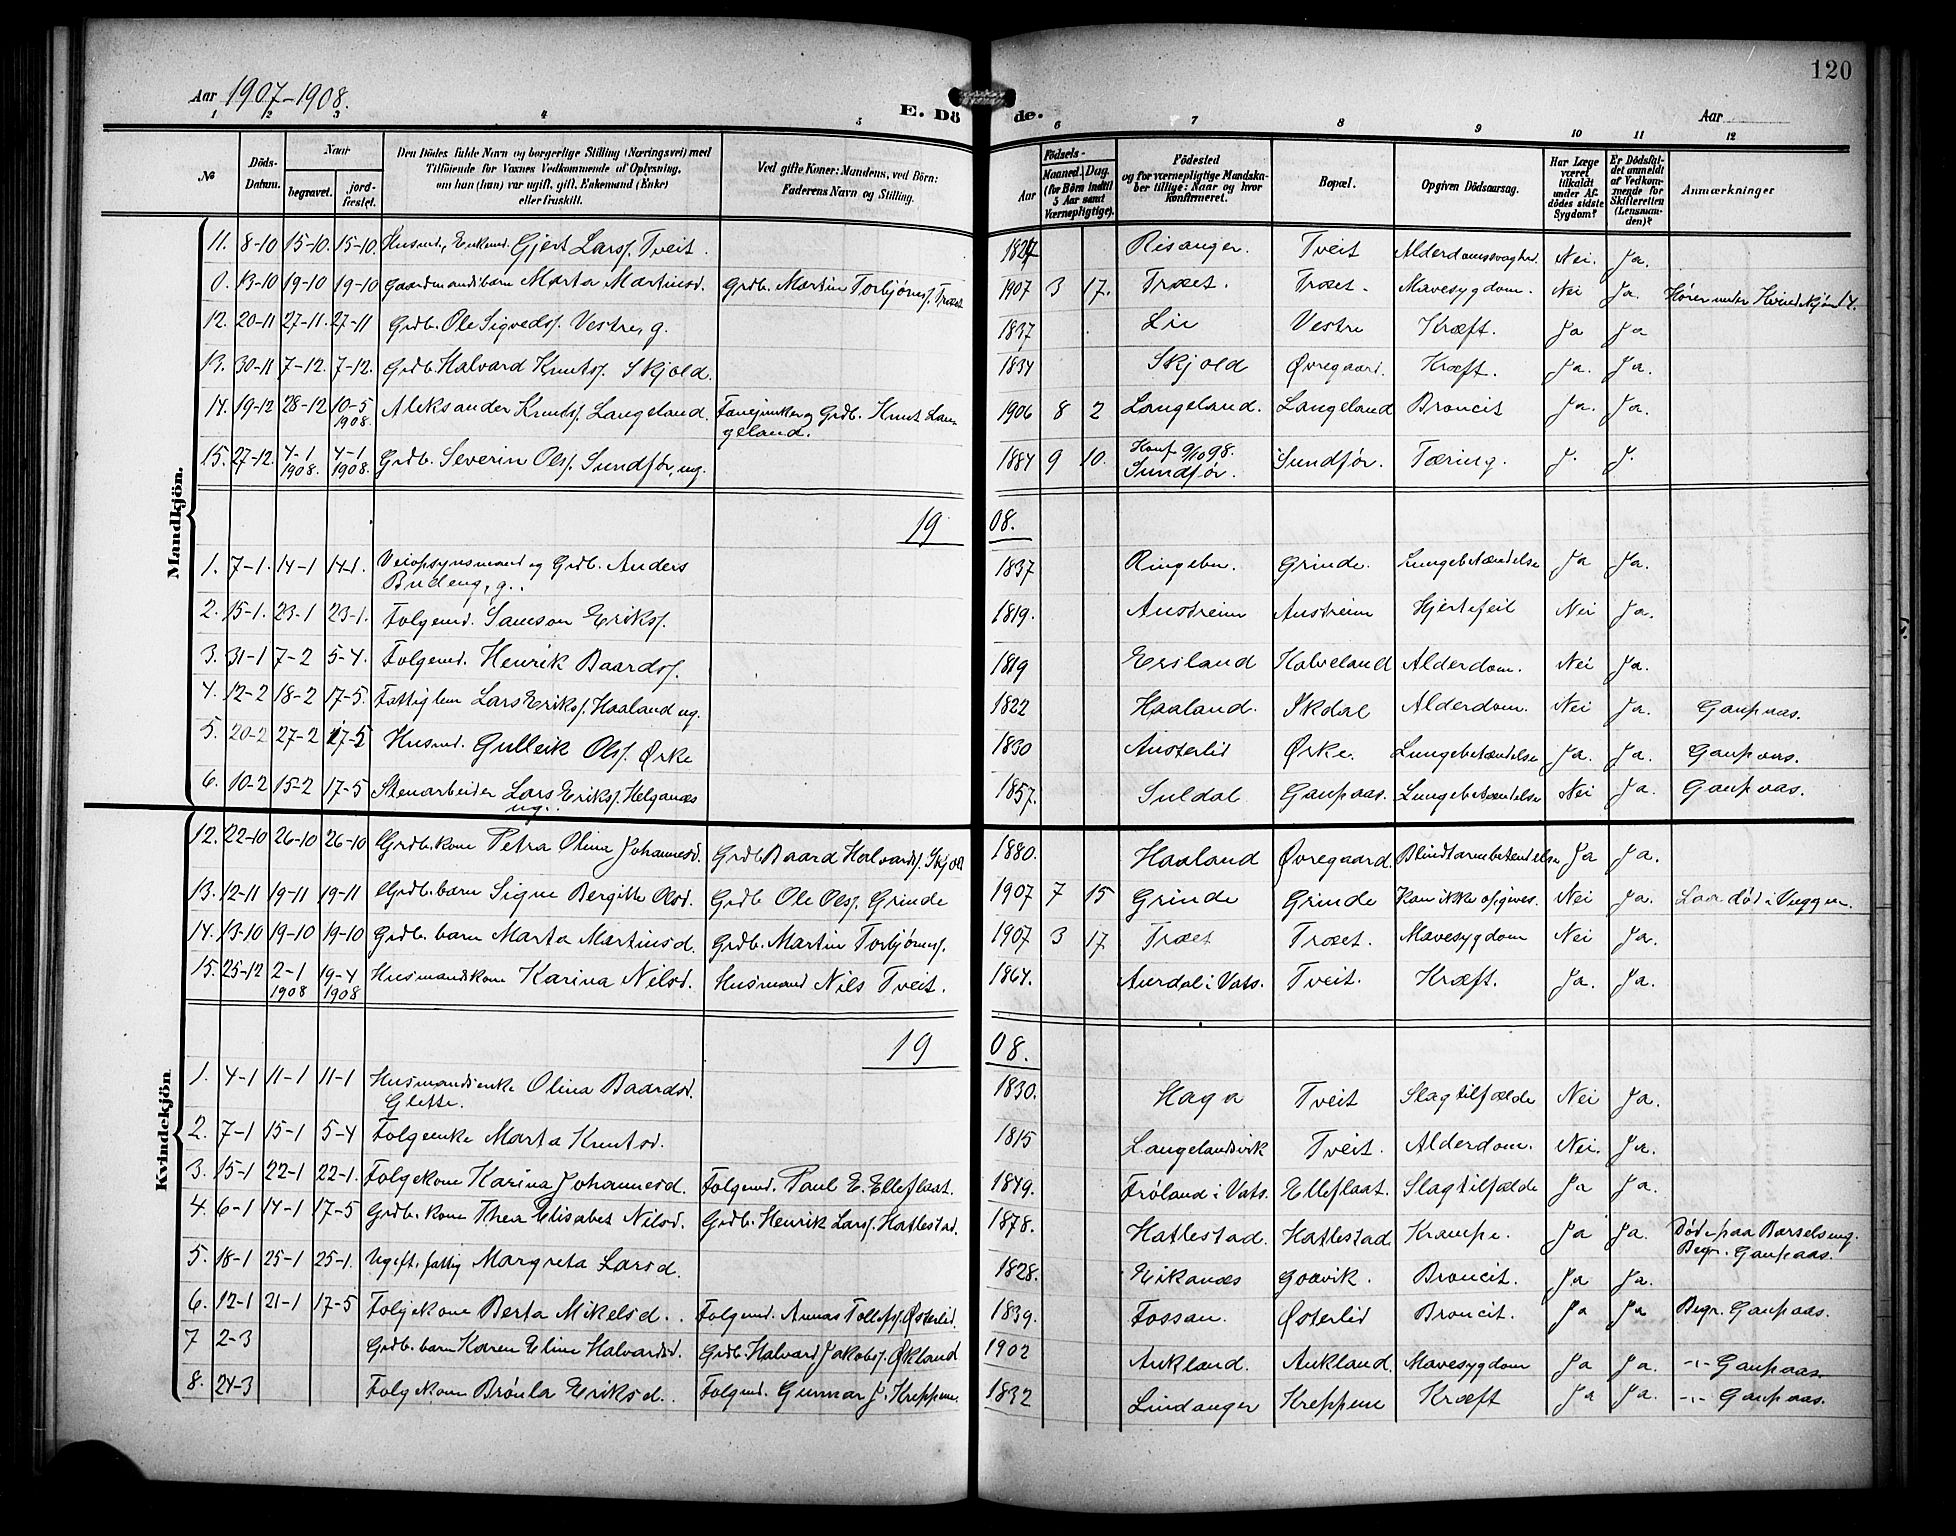 120
Aar 1907-1908.
E. Dö de.
Aar
1 2 3 4 5 6 7 8 9 10 11 12
№ Döds-Datum. Naar begravet. jordfæstet. Den Dödes fulde Navn og borgerlige Stilling (Næringsvei) med Tilföiende for Voxnes Vedkommende af Oplysning, om han (hun) var ugift, gift, Enkemand (Enke) eller fraskilt. Ved gifte Koner: Mandens, ved Börn: Faderens Navn og Stilling. Födsels- Aar Maaned. Dag. (for Börn indtil 5 Aar samt Værnepligtige). Födested og for værnepligtige Mandskaber tillige: Naar og hvor konfirmeret. Bopæl. Opgiven Dödsaarsag. Har Læge været tilkaldt under Afdödes sidste Sygdom? Er Dödsfaldet anmeldt af Vedkommende for Skifteretten (Lensmanden)? Anmærkninger
Mandkjön.
11. 8-10 15-10. 15-10. Husmd., Enkemd. Gjert Larss. Tveit. 1827 Risanger. Tveit Alderdomssvaghed. Nei. Ja.
0. 13-10 19-10 19-10 Gaardmandsbarn Marta Martinsd. Grdb. Martin Torbjörns. Træet 1907 3 17. Træet. Træet. Mavesygdom. Nei Ja. Hører under Kvindekjøn 14.
12. 20-11 27-11. 27-11 Grdb. Ole Sigveds. Vestre, g. 1837 Lie Vestre Kræft. Ja Ja
13. 30-11 7-12. 7-12. Grdb. Halvard Knuts. Skjold. 1834 Skjold Øvregaard. Kræft. Ja. Ja.
14. 19-12 28-12 10-5 1908. Aleksander Knuts. Langeland. Fanejunker og Grdb. Knut Langeland. 1906 8 2 Langeland. Langeland Broncit Ja. Ja.
15. 27-12. 4-1 1908. 4-1 1908. Grdb. Severin Ols. Sundfør, ug. 1884 9 10. Konf. 9/10 98. Sundfør. Sundfør. Tæring. J. J.
1908.
1. 7-1. 14-1 14-1. Veiopsynsmand og Grdb. Anders Budeng, g. 1837 Ringebu. Grinde. Lungebetændelse Ja Ja.
2. 15-1. 23-1 23-1. Folgemd. Samson Eriks. 1819. Austreim Austreim Hjertefeil Nei Ja.
3. 31-1 7-2 5-4. Folgemd. Henrik Baards. 1819 Esiland Halveland Alderdom. Nei Ja.
4. 12-2 18-2 17-5. Fattiglem Lars Eriks. Haaland ug. 1822 Haaland. Ikdal Alderdom. Nei Ja. Gaupaas.
5. 20-2 27-2 17-5 Husmd. Gulleik Ols. Ørke 1830 Austerlid Ørke. Lungebetændelse Ja. Ja. Gaupaas.
6. 10-2 15-2 17-5 Stenarbeider Lars Eriks. Helganæs ug. 1857. Suldal. Gaupaas. Lungebetændelse Nei Ja. Gaupaas.
Kvindekjön
12. 22-10 26-10 26-10 Grdb.kone Petra Olina Johannesd. Grdb Baard Halvards. Skjold 1880. Haaland Øvregaard. Blindtarmbetendelse Ja Ja.
13. 12-11 19-11 19-11 Grdb.barn Signe Bergitte Olsd. Grdb Ole Ols. Grinde 1907 7 15 Grinde Grinde Kan ikke opgives. Nei Ja. Laa død i Vuggen.
14. 13-10 19-10 19-10 Grdb. barn Marta Martinsd. Grdb. Martin Torbjørns. 1907 3 17 Træet Træet. Mavesygdom Nei Ja.
15. 25-12 2-1 1908 19-4 1908 Husmandskone Karina Nilsd. Husmand Nils Tveit. 1864. Aurdal i Vats. Tveit. Kræft. Ja. Ja.
1908.
1. 4-1 11-1 11-1 Husmandsenke Olina Baardsd. Glette. 1830. Haga Tveit Slagtilfælde Nei Ja.
2. 7-1 15-1 5-4 Folgeenke Marta Knutsd. 1815 Langelandsvik Tveit. Alderdom. Nei. Ja.
3. 15-1 22-1 22-1. Folgekone Karina Johannesd. Folgemd. Paul E. Elleflaat. 1849. Frøland i Vats. Elleflaat. Slagtilfælde Ja Ja.
4. 6-1 14-1 17-5 Grdb. kone Thea Elisabet Nilsd. Grdb. Henrik Lars. Hatlestad. 1878. Hatlestad. Hatlestad Krampe. Ja Ja. Døde paa Barselseng. Begr. Gaupaas.
5. 18-1 25-1 25-1. Ugift, fattig Margreta Larsd. 1828. Eikanæs Goavik. Broncit. Ja Ja.
6. 12-1 21-1 17-5 Folgekone Berta Mikelsd. Folgemd. Aanas Tollefs. Østerlid. 1839. Fossan. Østerlid Broncit. Ja Ja Begr. Gaupaas.
7 2-3 Grdb. barn Karen Eline Halvardsd. Grdb. Halvard Jakobs. Økland 1902 Aukland. Aukland. Mavesygdom Ja Ja. -"- Gaupaas.
8. 24-3 Folgekone Brønla Eriksd. Folgmd. Gunnar J. Kreppene. 1832 Lindanger Kreppene Kræft Ja Ja. -"- Gaupaas.